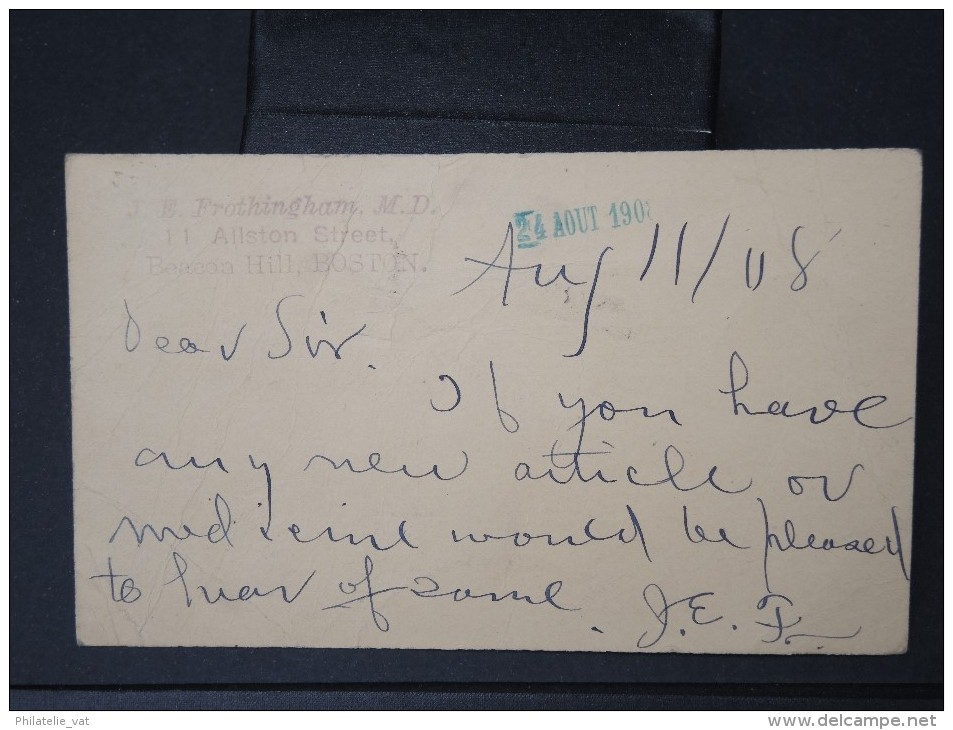 J. E. Frothingham, M.D.
11 Allston Street,
Beacon Hill, BOSTON.
24 AOUT 1908
Aug 11/08
Dear Sir.
If you have
any new article or
medicine would be pleased
to hear of same.
J. E. F.
Philatelie_vat
delcampe.net